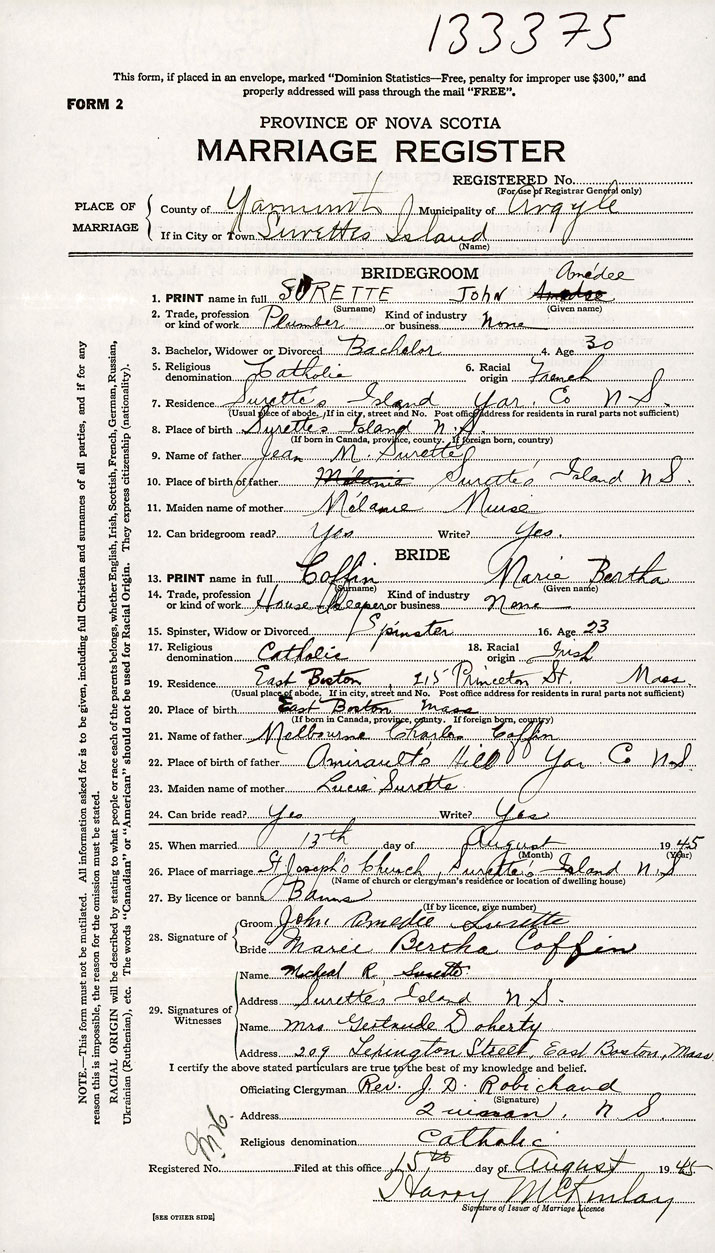 133375
This form, if placed in an envelope, marked "Dominion Statistics—Free, penalty for improper use $300," and
properly addressed will pass through the mail "FREE".
FORM 2
PROVINCE OF NOVA SCOTIA
MARRIAGE REGISTER
REGISTERED No.
(For use of Registrar General only)
PLACE OF MARRIAGE
County of Yarmouth Municipality of Argyle
If in City or Town Surettes Island
(Name)
BRIDEGROOM
Amédee
1. PRINT name in full SURETTE JOHN
(Surname) (Given name)
2. Trade, profession or kind of work Plumber Kind of industry or business None
3. Bachelor, Widower or Divorced Bachelor 4. Age 30
5. Religious denomination Catholic 6. Racial origin French
7. Residence Surette's Island Yar. Co N S.
(Usual place of abode. If in city, street and No. Post office address for residents in rural parts not sufficient)
8. Place of birth Surette's Island N. S.
(If born in Canada, province, county. If foreign born, country)
9. Name of father Jean M. Surette
10. Place of birth of father Mélanie Surette's Island N S.
11. Maiden name of mother Mélanie Muise
12. Can bridegroom read? Yes Write? Yes.
BRIDE
13. PRINT name in full Coffin Marie Bertha
(Surname) (Given name)
14. Trade, profession or kind of work House Keeper Kind of industry or business None
15. Spinster, Widow or Divorced Spinster 16. Age 23
17. Religious denomination Catholic 18. Racial origin Irish
19. Residence East Boston, 215 Princeton St. Mass.
(Usual place of abode. If in city, street and No. Post office address for residents in rural parts not sufficient)
20. Place of birth East Boston Mass
(If born in Canada, province, county. If foreign born, country)
21. Name of father Melbourne Charles Coffin
22. Place of birth of father Amirault's Hill Yar Co N.S.
23. Maiden name of mother Lucie Surette
24. Can bride read? Yes Write? Yes
25. When married 13th day of August 1945
(Month) (Year)
26. Place of marriage St Joseph's Church, Surette's Island N. S
(Name of church or clergyman's residence or location of dwelling house)
27. By licence or banns Banns
(If by licence, give number)
28. Signature of
Groom John Amedée Surette
Bride Marie Bertha Coffin
29. Signatures of Witnesses
Name Micheal R Surette
Address Surette's Island N S.
Name Mrs Gertrude Doherty
Address 209 Lexington Street, East Boston, Mass
I certify the above stated particulars are true to the best of my knowledge and belief.
Officiating Clergyman Rev. J. D. Robichaud
(Signature)
Address N S.
Religious denomination Catholic
Registered No. Filed at this office 15th day of August 1945
Harry McKinlay
Signature of Issuer of Marriage Licence
[SEE OTHER SIDE]
NOTE.—This form must not be mutilated. All information asked for is to be given, including full Christian and surnames of all parties, and if for any
reason this is impossible, the reason for the omission must be stated.
RACIAL ORIGIN will be described by stating to what people or race each of the parents belongs, whether English, Irish, Scottish, French, German, Russian,
Ukrainian (Ruthenian), etc. The words "Canadian" or "American" should not be used for Racial Origin. They express citizenship (nationality).